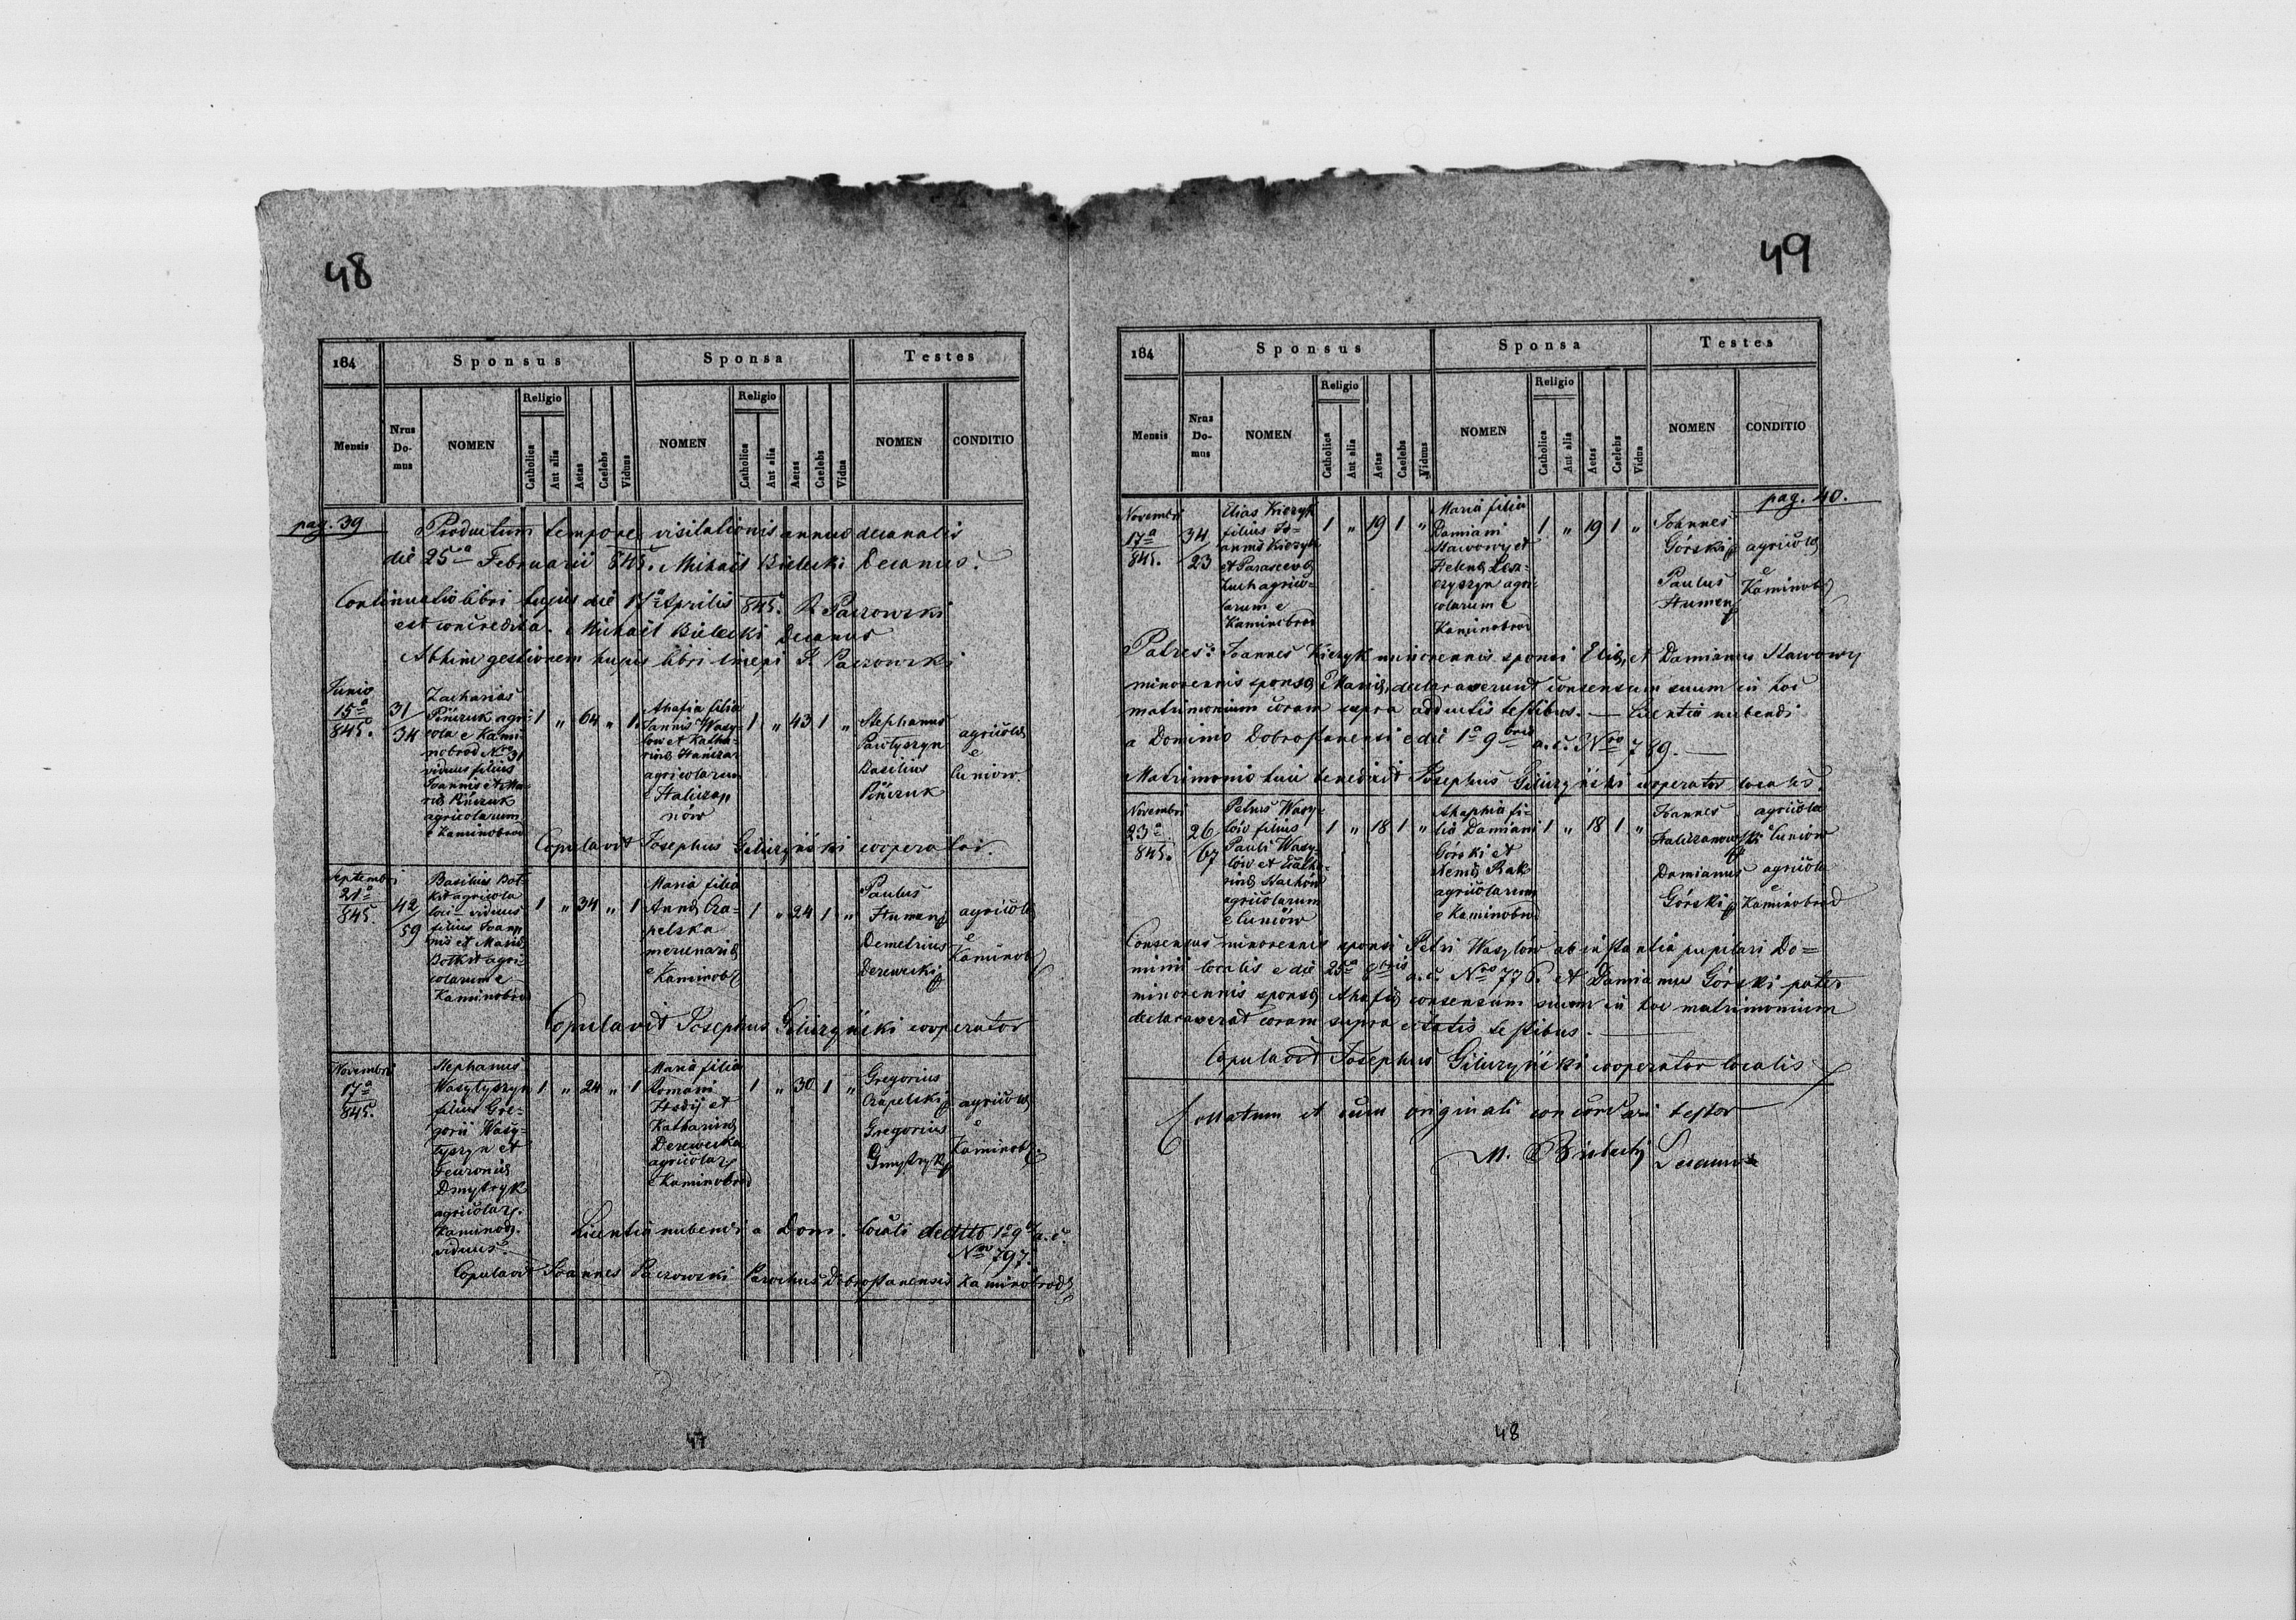 48
184
Sponsus
Sponsa
Testes
Mensis
Nrus Do-mus
NOMEN
Religio
Catholica
Aut alia
Aetas
Caelebs
Viduus
NOMEN
Religio
Catholica
Aut alia
Aetas
Caelebs
Vidua
NOMEN
CONDITIO
pag. 39
Productum tempore visitationis annus decanalis
die 25a Februarii 845. Michael Bielecki Decanus.
Continuatio libri hujus die 17a Aprilis 845. Paczowski
est concredita. Michael Bielecki Decanus
Abhinc gestionem hujus libri incepi Paczowski
Junio
15a
845.
31
34
Zacharias
Pińczuk agri-
cola e Kami-
nobrod Nro 31
viduus filius
Joannis et Ma-
riae Pińczuk
agricolarum
e Kaminobrod
1 " 64 " 1
Ahafia filia
Joannis Wasy-
low et Katha-
rinae
agricolarum
e
1 " 43 1 "
Stephanus
Pawłyszyn
Basilius
Pińczuk
agricolae
e
Luniow
Copulavit Josephus Giliczyński cooperator.
Septembri
21a
845.
42
59
Basilius Bot-
kit agricola
loci viduus
filius Joan-
nis et Mariae
Botkit agri-
colarum e
Kaminobrod
1 " 34 " 1
Maria filia
Annae Cza-
pelska
mercenariae
e Kaminob
1 " 24 1 "
Paulus
Humen
Demetrius
Derewecki
agricolae
e
Kaminob
Copulavit Josephus Giliczyński cooperator
Novembri
17a
845.
Stephanus
Wasylyszyn
filius Gre-
gorii Wasy-
lyszyn et
Feuroniae
Dmytryk
agricolar.
Kaminob.
viduus.
1 " 24 " 1
Maria filia
Romani
et
Katharinae
Derewecka
agricolar
e Kaminobrod
1 " 30 1 "
Gregorius
Czapelski
Gregorius
Dmytryk
agricolae
e
Kaminob
Licentia nubendi a Dom. locali de dtto 1a 9b a. c.
Nro 797.
Copulavit Joannes Paczowski Parochus Dobrostanensis Kaminobrod
47
49
184
Sponsus
Sponsa
Testes
Mensis
Nrus Do-mus
NOMEN
Religio
Catholica
Aut alia
Aetas
Caelebs
Viduus
NOMEN
Religio
Catholica
Aut alia
Aetas
Caelebs
Vidua
NOMEN
CONDITIO
pag. 40.
Novembri
17a
845.
34
23
Elias Kiczyk
filius Jo-
annis Kiczyk
et Parascevae
Zuch agrico-
larum e
Kaminobrod
1 " 19 1 "
Maria filia
Damiani
Stawowy et
Helenae Lesz-
czyszyn agri-
colarum e
Kaminobrod
1 " 19 1 "
Joannes
Górski
Paulus
Humen
agricolae
e
Kaminob
Patres: Joannes Kiczyk minorennis sponsi Eliae, et Damianus Stawowy
minorennis sponsae Mariae, declaraverunt consensum suum in hoc
matrimonium coram supra adductis testibus. — Licentia nubendi
a Dominio Dobrostanensi e die 1a 9bris a. c. Nro 789. —
Matrimonio huic benedixit Josephus Giliczyński cooperator localis.
Novembri
23a
845.
26
67
Petrus Wasy-
lów filius
Pauli Wasy-
lów et Katha-
rinae Stachów
agricolarum
e Luniów
1 " 18 1 "
Ahaphia fi-
lia Damiani
Górski et
Xeniae Rak
agricolarum
e Kaminobrod
1 " 18 1 "
Joannes
Haliczanowski
Damianus
Górski
agricola
e Luniow
agricola
e
Kaminobrod
Consensus minorennis sponsi Petri Wasylów ab instantia pupilari Do=
minii localis e die 25a 8bris a. c. Nro 776. et Damianus Górski pater
minorennis sponsae Ahafiae consensum suum in hoc matrimonium
declaraverat coram supra citatis testibus. —
Copulavit Josephus Giliczyński cooperator localis
Collatum et cum originali concordari testor
M. Bielecki Decanus
48